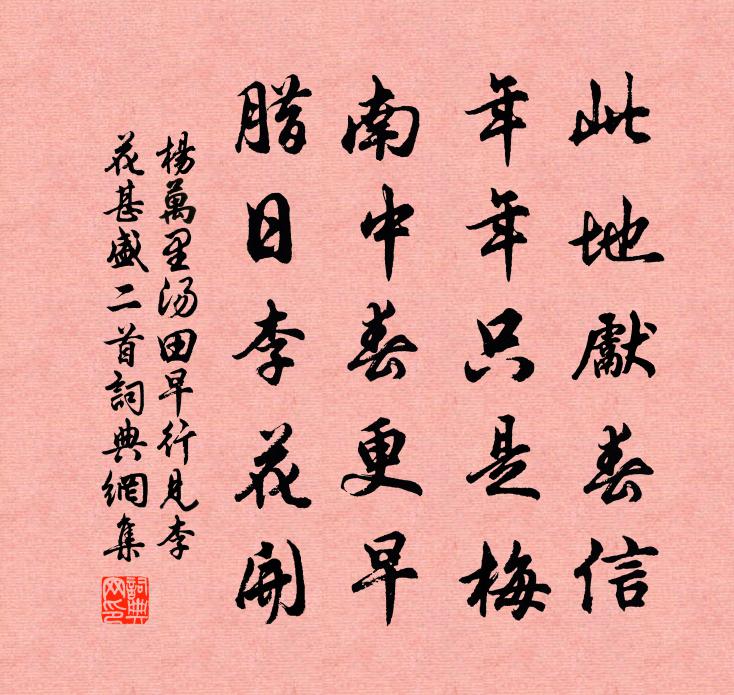 此地獻春信
年年只是梅
南中春更早
腊日李花開
楊萬里汤田早行見李
花甚盛二首詞典網集
詞典
网印